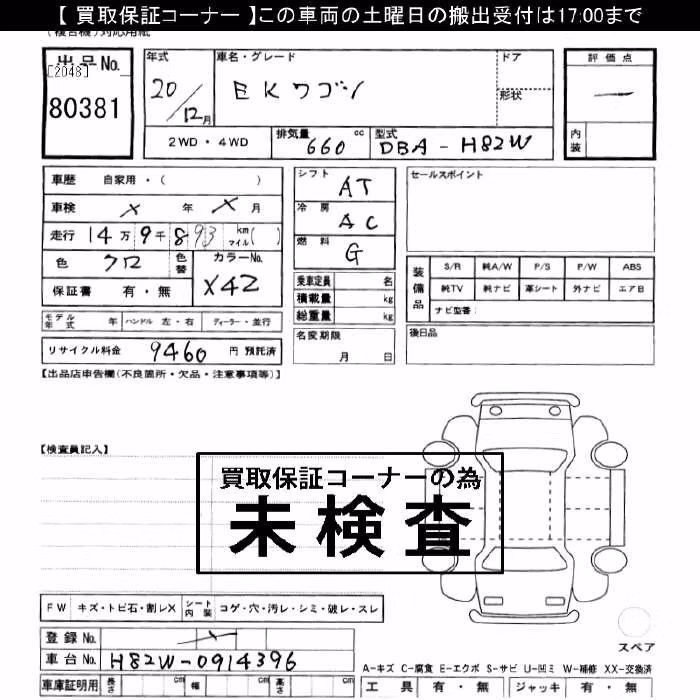 【 買取保証コーナー 】この車両の土曜日の搬出受付は17:00まで
(複合機)対応用紙
出品No.
[2048]
80381
年式
20/12月
車名・グレード
EKワゴン
ドア
形状
評価点
―
内装
2WD・4WD
排気量 660 cc
型式 DBA-H82W
車歴 自家用・( )
車検 × 年 × 月
走行 14万9千893 km マイル( )
色 クロ
色替
カラーNo. X42
保証書 有・無
シフト AT
冷房 AC
燃料 G
乗車定員 名
積載量 kg
総重量 kg
セールスポイント
装備品
S/R 純A/W P/S P/W ABS
純TV 純ナビ 革シート 外ナビ エアB
ナビ型番:
モデル年式 年 ハンドル 左・右 ディーラー・並行
リサイクル料金 9460 円 預託済
名変期限 月 日
後日品
【出品店申告欄(不良箇所・欠品・注意事項等)】
【検査員記入】
買取保証コーナーの為
未検査
FW キズ・トビ石・割レX シート内装 コゲ・穴・汚レ・シミ・破レ・スレ
スペア
登録No. ×
車台No. H82W-0914396
A-キズ C-腐食 E-エクボ S-サビ U-凹ミ W-補修 XX-交換済
車庫証明用 長さ cm 幅 cm 高さ cm
工具 有・無 ジャッキ 有・無